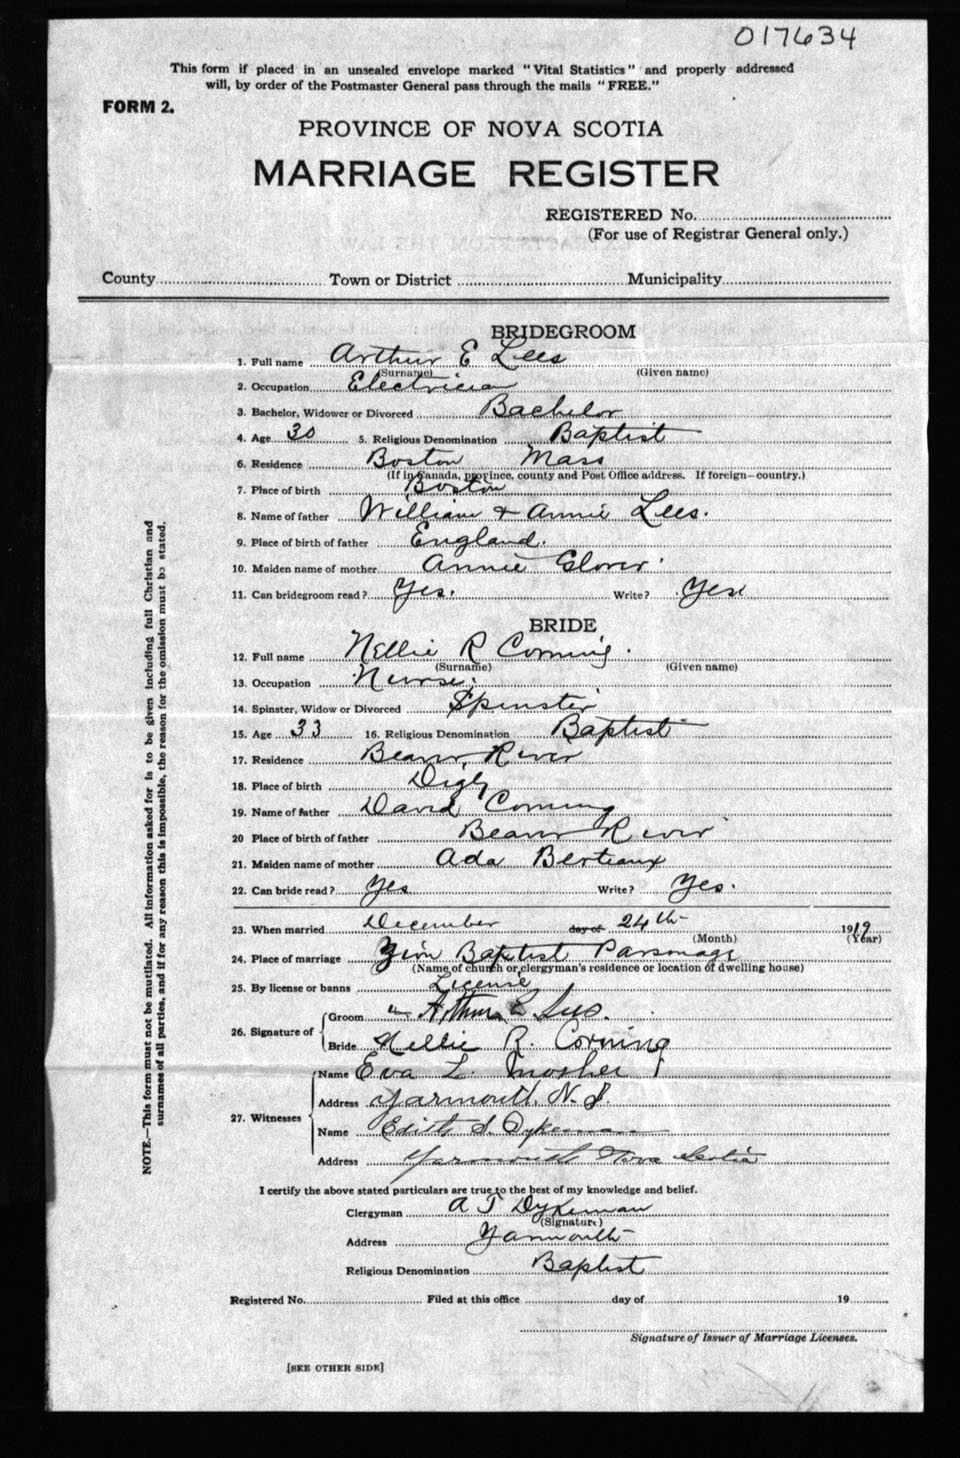 017634
This form if placed in an unsealed envelope marked "Vital Statistics" and properly addressed
will, by order of the Postmaster General pass through the mails "FREE."
FORM 2.
PROVINCE OF NOVA SCOTIA
MARRIAGE REGISTER
REGISTERED No.
(For use of Registrar General only.)
County Town or District Municipality
BRIDEGROOM
1. Full name Arthur E Lees
(Surname) (Given name)
2. Occupation Electrician
3. Bachelor, Widower or Divorced Bachelor
4. Age 30 5. Religious Denomination Baptist
6. Residence Boston Mass
(If in Canada, province, county and Post Office address. If foreign—country.)
7. Place of birth Boston
8. Name of father William & Annie Lees.
9. Place of birth of father England.
10. Maiden name of mother Annie Glover
11. Can bridegroom read? Yes. Write? Yes
BRIDE
12. Full name Nellie R Corning
(Surname) (Given name)
13. Occupation Nurse.
14. Spinster, Widow or Divorced Spinster
15. Age 33 16. Religious Denomination Baptist
17. Residence Beaver River
18. Place of birth Digby
19. Name of father David Corning
20 Place of birth of father Beaver River
21. Maiden name of mother Ada Berteaux
22. Can bride read? Yes Write? Yes.
23. When married December day of 24th 1919
(Month) (Year)
24. Place of marriage Zion Baptist Parsonage
(Name of church or clergyman's residence or location of dwelling house)
25. By license or banns License
26. Signature of Groom Arthur E Lees.
Bride Nellie R. Corning
27. Witnesses Name Eva L. Mosher
Address Yarmouth, N.S.
Name Edith S. Dykeman
Address Yarmouth Nova Scotia
I certify the above stated particulars are true to the best of my knowledge and belief.
Clergyman A J Dykeman
(Signature)
Address Yarmouth
Religious Denomination Baptist
Registered No. Filed at this office day of 19
Signature of Issuer of Marriage Licenses.
[SEE OTHER SIDE]
NOTE.—This form must not be mutilated. All information asked for is to be given including full Christian and
surnames of all parties, and if for any reason this is impossible, the reason for the omission must be stated.